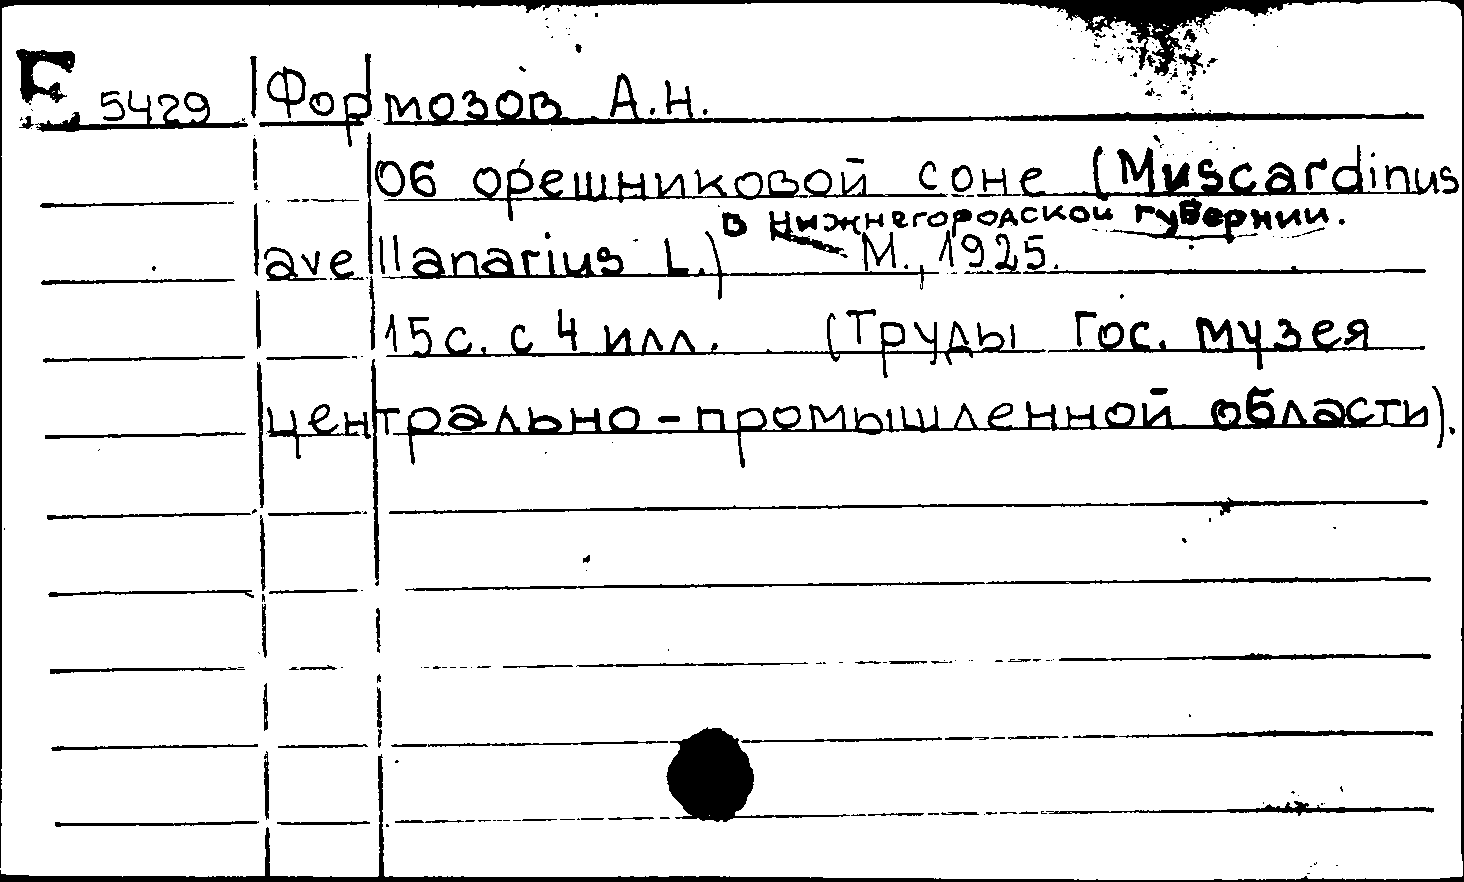 Е 5429 Формозов А.Н.
Об орешниковой соне (Muscardinus
в Нижнегородской губернии.
avellanarius L.) М., 1925.
15 с. с 4 илл. (Труды Гос. музея
центрально-промышленной области).